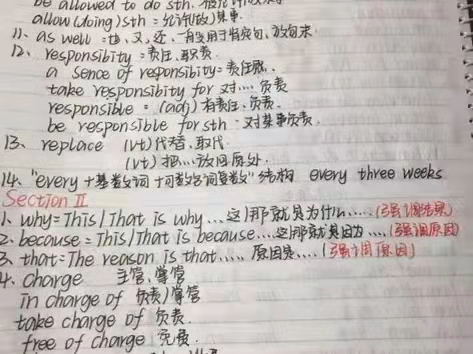 be allowed to do sth. 被允许做某事
allow (doing) sth = 允许(做)某事.
11. as well = 也, 又, 还, 一般用于肯定句, 放句末.
12. responsibity = 责任, 职责.
a sence of responsibity = 责任感.
take responsibity for 对.... 负责
responsible = (adj) 有责任、负责.
be responsible for sth. 对某事负责.
13. replace (vt) 代替, 取代.
(vt) 把... 放回原处.
14. "every + 基数词 + 可数名词复数" 结构 every three weeks
Section II
1. why = This / That is why ... 这/那就是为什么.... (强调结果)
2. because = This / That is because.... 这/那就是因为.... (强调原因)
3. that = The reason is that..... 原因是.... (强调原因)
4. charge 主管, 掌管
in charge of 负责/掌管
take charge of 负责.
free of charge 免费.